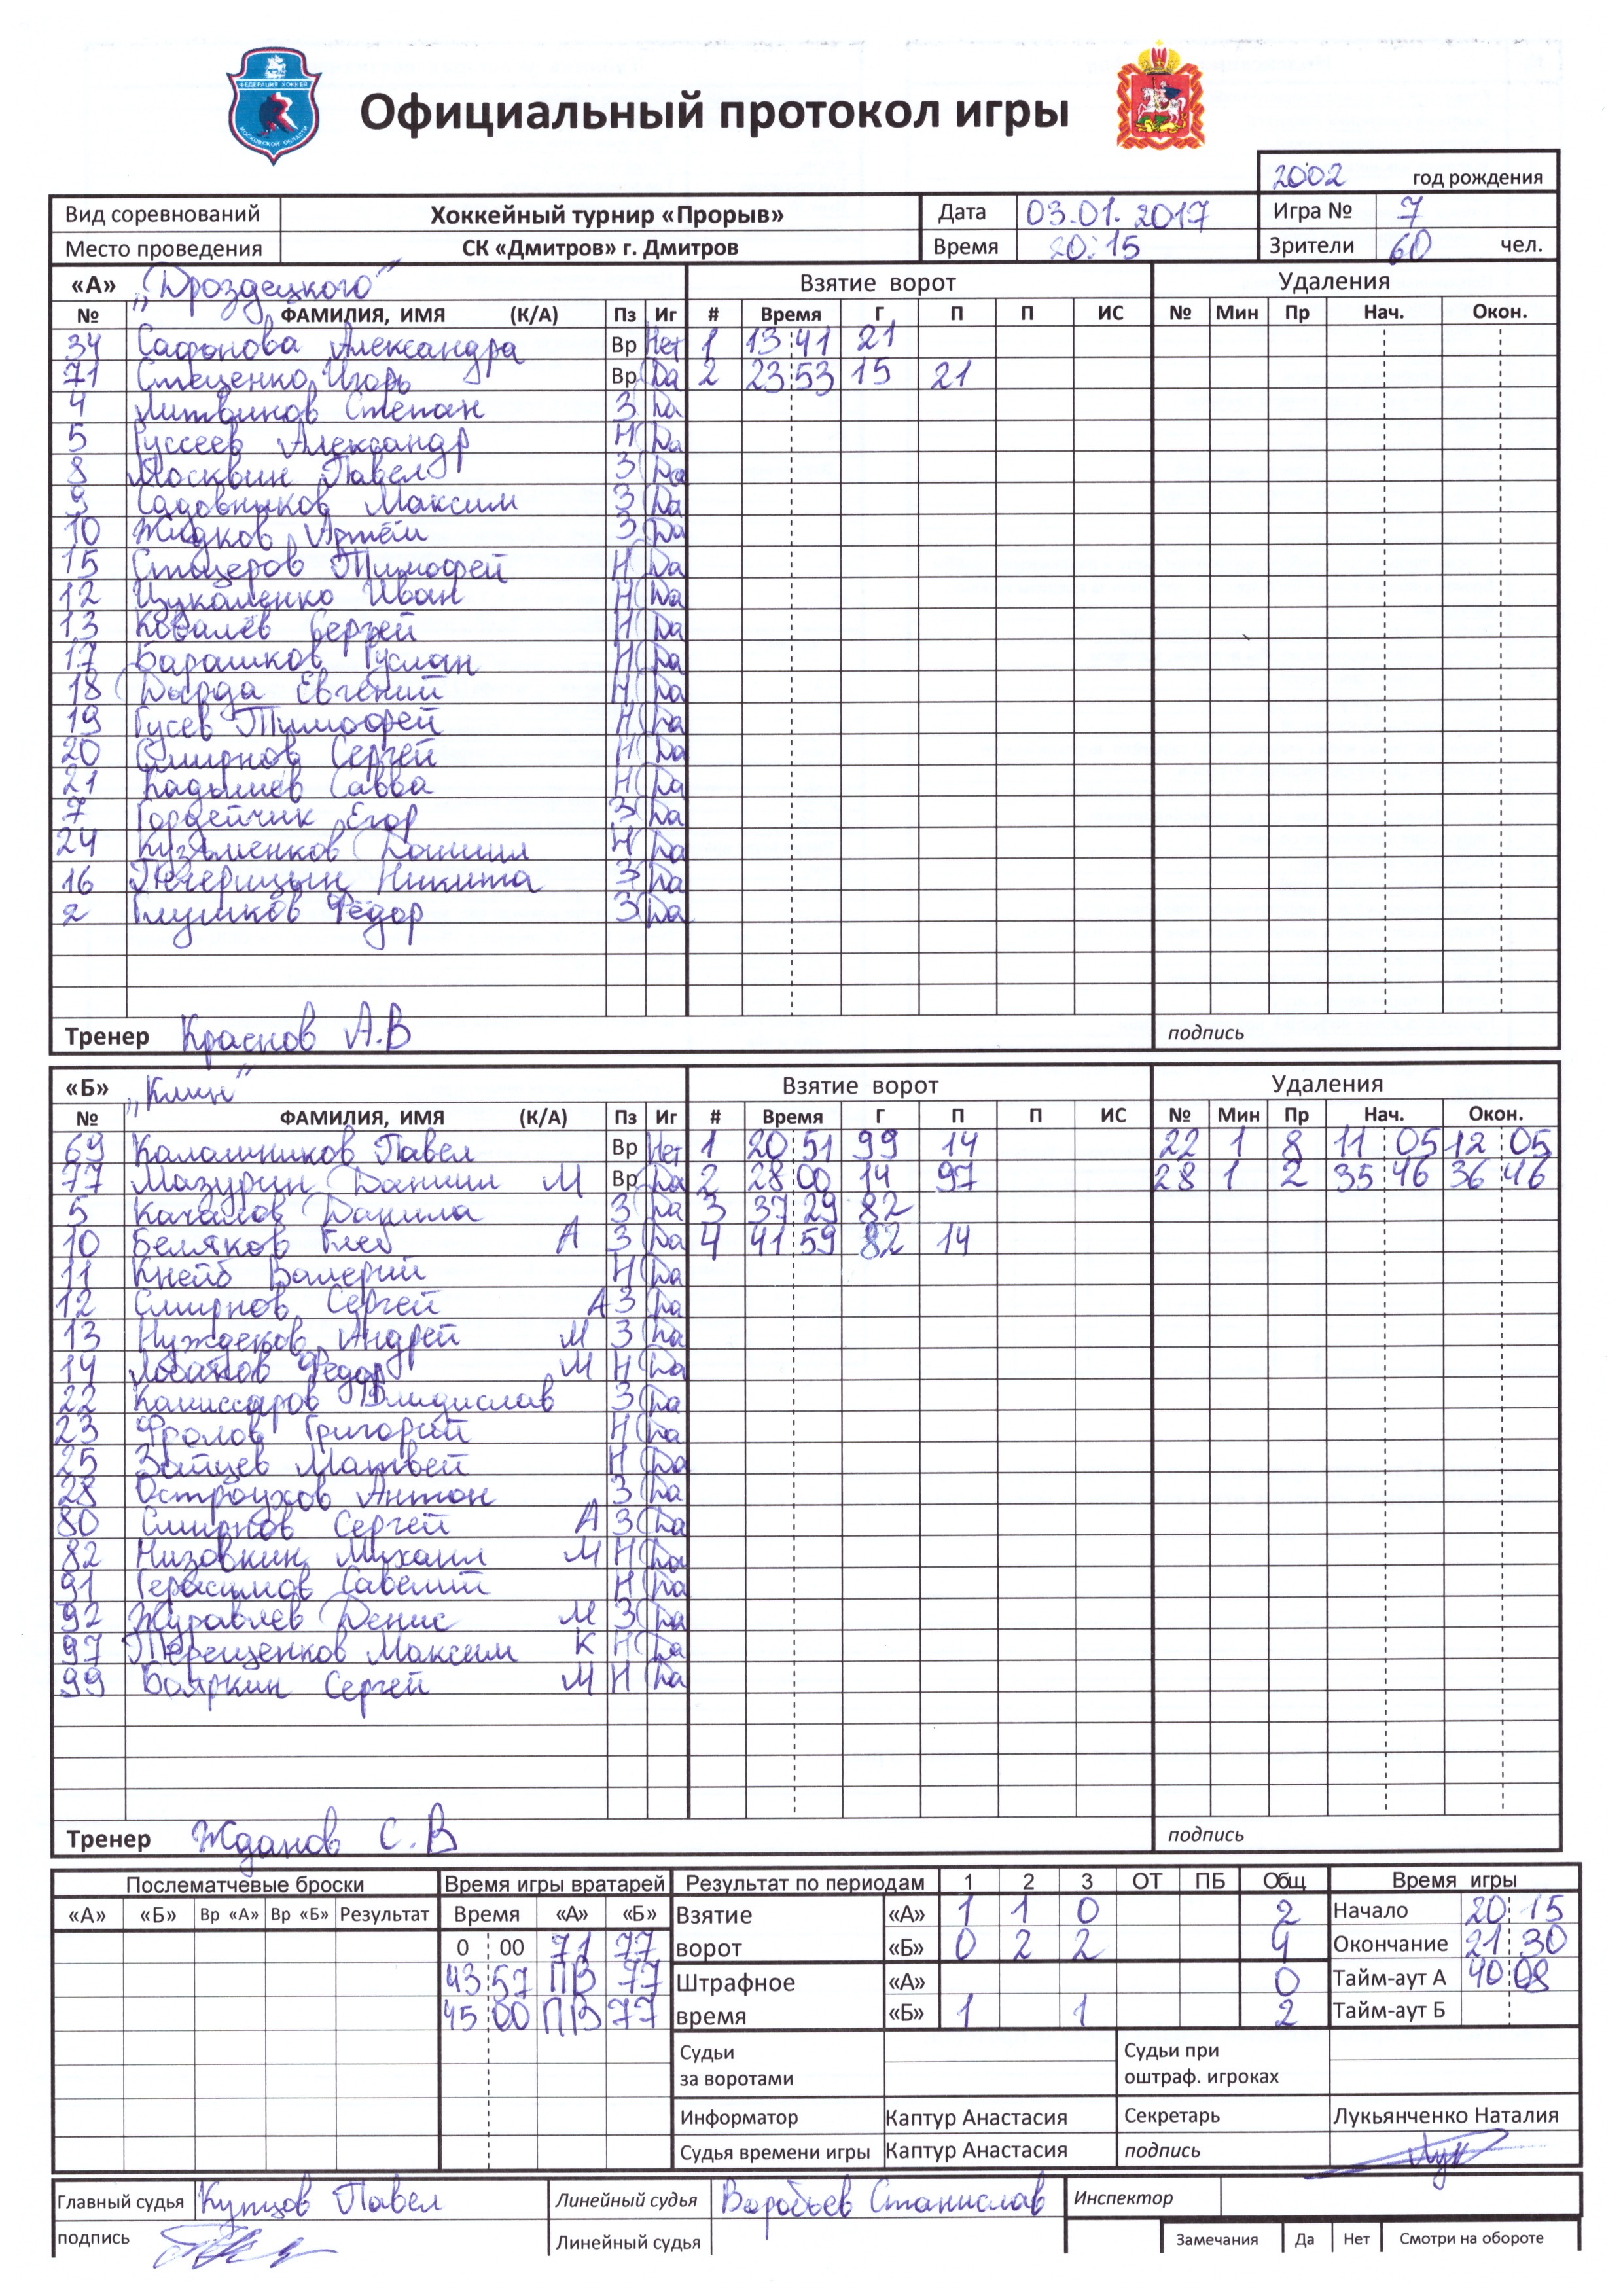 ФЕДЕРАЦИЯ ХОККЕЯ
МОСКОВСКОЙ ОБЛАСТИ
Официальный протокол игры
2002 год рождения
Вид соревнований Хоккейный турнир «Прорыв» Дата 03.01.2017 Игра № 7
Место проведения СК «Дмитров» г. Дмитров Время 20:15 Зрители 60 чел.
«А» „Дроздецкого" Взятие ворот Удаления
№ ФАМИЛИЯ, ИМЯ (К/А) Пз Иг # Время Г П П ИС № Мин Пр Нач. Окон.
34 Сафонова Александра Вр Нет 1 13 41 21
71 Стеценко Игорь Вр Да 2 23 53 15 21
4 Литвинов Степан З Да
5 Руссеев Александр Н Да
8 Москвин Павел З Да
9 Садовников Максим З Да
10 Жидков Артём З Да
15 Стоцеров Тимофей Н Да
12 Цукаленко Иван Н Да
13 Ковалёв Сергей Н Да
17 Барашков Руслан Н Да
18 Дырда Евгений Н Да
19 Гусев Тимофей Н Да
20 Смирнов Сергей Н Да
21 Кадышев Савва Н Да
7 Гордейчик Егор З Да
24 Кузьменков Даниил Н Да
16 Печерицын Никита З Да
2 Глушков Фёдор З Да
Тренер Краснов А.В подпись
«Б» „Клин" Взятие ворот Удаления
№ ФАМИЛИЯ, ИМЯ (К/А) Пз Иг # Время Г П П ИС № Мин Пр Нач. Окон.
69 Калашников Павел Вр Нет 1 20 51 99 14 22 1 8 11 05 12 05
77 Мазурин Даниил М Вр Да 2 28 00 14 97 28 1 2 35 46 36 46
5 Качалов Данила З Да 3 37 29 82
10 Беляков Глеб А З Да 4 41 59 82 14
11 Кнейб Валерий Н Да
12 Смирнов Сергей А З Да
13 Нуждеков Андрей М З Да
14 Лобанов Федор М Н Да
22 Комиссаров Владислав З Да
23 Фролов Григорий Н Да
25 Зайцев Матвей Н Да
28 Остроухов Антон З Да
80 Смирнов Сергей А З Да
82 Низовкин Михаил М Н Да
91 Герасимов Савелий Н Да
92 Журавлев Денис М З Да
97 Терещенков Максим К Н Да
99 Бояркин Сергей М Н Да
Тренер Жданов С.В подпись
Послематчевые броски Время игры вратарей Результат по периодам 1 2 3 ОТ ПБ Общ Время игры
«А» «Б» Вр «А» Вр «Б» Результат Время «А» «Б» Взятие «А» 1 1 0 2 Начало 20 15
0 00 71 77 ворот «Б» 0 2 2 4 Окончание 21 30
43 57 ПВ 77 Штрафное «А» 0 Тайм-аут А 40 08
45 00 ПВ 77 время «Б» 1 1 2 Тайм-аут Б
Судьи за воротами Судьи при оштраф. игроках
Информатор Каптур Анастасия Секретарь Лукьянченко Наталия
Судья времени игры Каптур Анастасия подпись
Главный судья Купцов Павел Линейный судья Воробьев Станислав Инспектор
подпись Линейный судья Замечания Да Нет Смотри на обороте